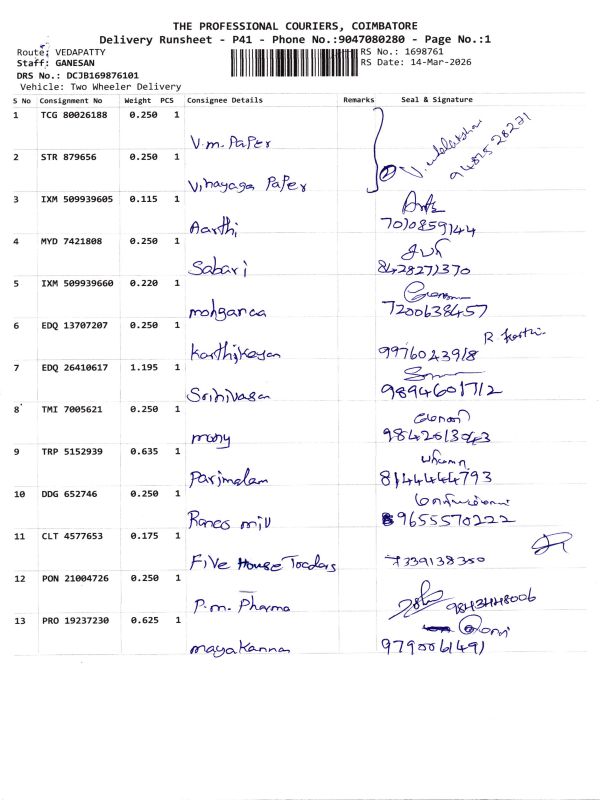 THE PROFESSIONAL COURIERS, COIMBATORE
Delivery Runsheet - P41 - Phone No.:9047080280 - Page No.:1
Route: VEDAPATTY
RS No.: 1698761
Staff: GANESAN
RS Date: 14-Mar-2026
DRS No.: DCJB169876101
Vehicle: Two Wheeler Delivery
S No Consignment No Weight PCS Consignee Details Remarks Seal & Signature
1 TCG 80026188 0.250 1
V.m. PaPer
2 STR 879656 0.250 1
Vinayaga PaPer
3 IXM 509939605 0.115 1
Aarthi 7010859144
4 MYD 7421808 0.250 1
Sabari 8428271370
5 IXM 509939660 0.220 1
7200638457
6 EDQ 13707207 0.250 1
R. Karthi
Karthikeyan 9976023918
7 EDQ 26410617 1.195 1
Srinivasan 9894601712
8 TMI 7005621 0.250 1
many 9842013043
9 TRP 5152939 0.635 1
Parimalam 8144444793
10 DDG 652746 0.250 1
mill 9655570222
11 CLT 4577653 0.175 1
Five House 7339138350
12 PON 21004726 0.250 1
P.m. Pharma 9843448006
13 PRO 19237230 0.625 1
mayakannan 9790061491